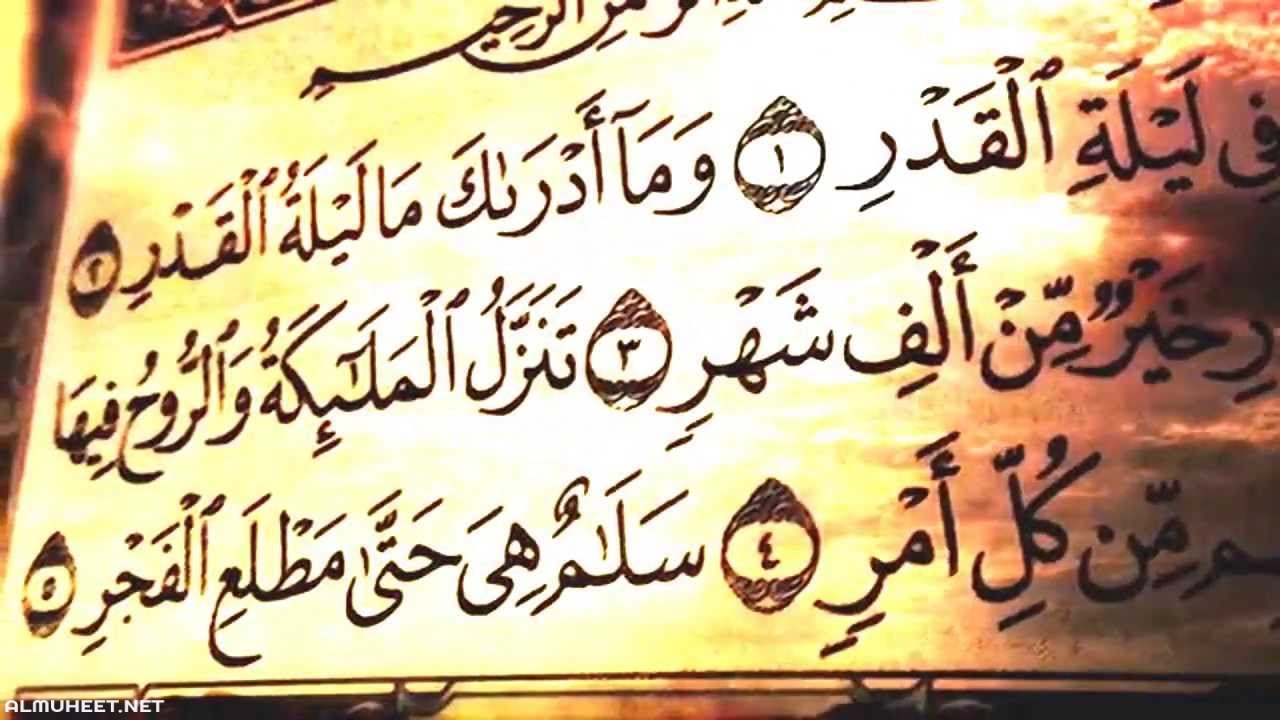 ٱلرَّحِيمِ
فِي لَيْلَةِ ٱلْقَدْرِ ١ وَمَآ أَدْرَىٰكَ مَا لَيْلَةُ ٱلْقَدْرِ ٢
رِ خَيْرٌ مِّنْ أَلْفِ شَهْرٍ ٣ تَنَزَّلُ ٱلْمَلَـٰٓئِكَةُ وَٱلرُّوحُ فِيهَا
ـهِم مِّن كُلِّ أَمْرٍ ٤ سَلَـٰمٌ هِىَ حَتَّىٰ مَطْلَعِ ٱلْفَجْرِ ٥
ALMUHEET.NET